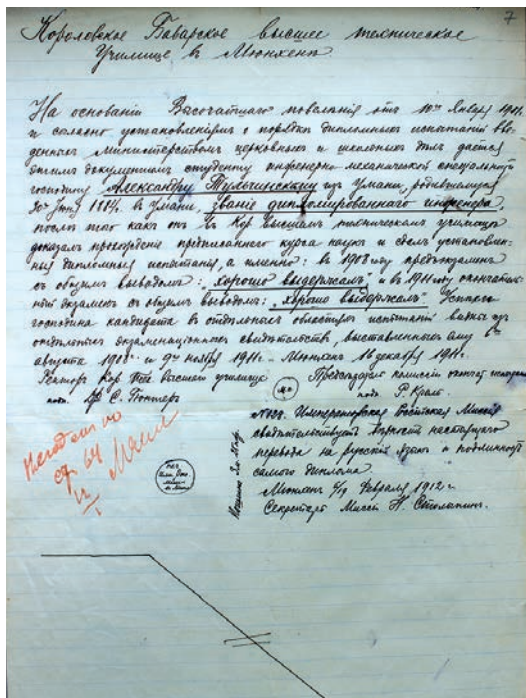 7
Королевское Баварское высшее техническое
Училище въ Мюнхенѣ
На основаніи Высочайшаго повелѣнія отъ 10го Января 1901
и согласно установленіямъ о порядкѣ дипломныхъ испытаній вве-
денныхъ министерствомъ церковныхъ и школьныхъ дѣлъ дается
симъ документомъ студенту инженерно-механической спеціальности
господину Александру Тульчинскому изъ Умани, родившемуся
въ Умани, званіе дипломированнаго инженера,
послѣ того какъ онъ въ Кор. Высшемъ техническомъ училищѣ
доказалъ прохожденіе предписаннаго курса наукъ и сдалъ установлен-
ныя дипломныя испытанія, а именно: въ 1908 году предъэкзаменъ
съ общимъ выводомъ: "хорошо выдержалъ" и въ 1911 году окончатель-
ный экзаменъ съ общимъ выводомъ: "хорошо выдержалъ".
господина кандидата въ отдѣльныхъ областяхъ испытаній видны изъ
отдѣльныхъ экзаменаціонныхъ свидѣтельствъ, выставленныхъ ему 6го
августа 1908 г. и 9го ноября 1911 г. Мюнхенъ 16 декабря 1911 г.
Ректоръ Кор. Высшаго училища Предсѣдатель комиссіи
подп. С. Гюнтеръ мп подп. Р.
Императорская Россійская Миссія
свидѣтельствуетъ вѣрность настоящаго
перевода на русскій языкъ и подлинность
самого диплома
Мюнхенъ Февраля 1912 г.
Секретарь Миссіи Н. Столыпинъ.